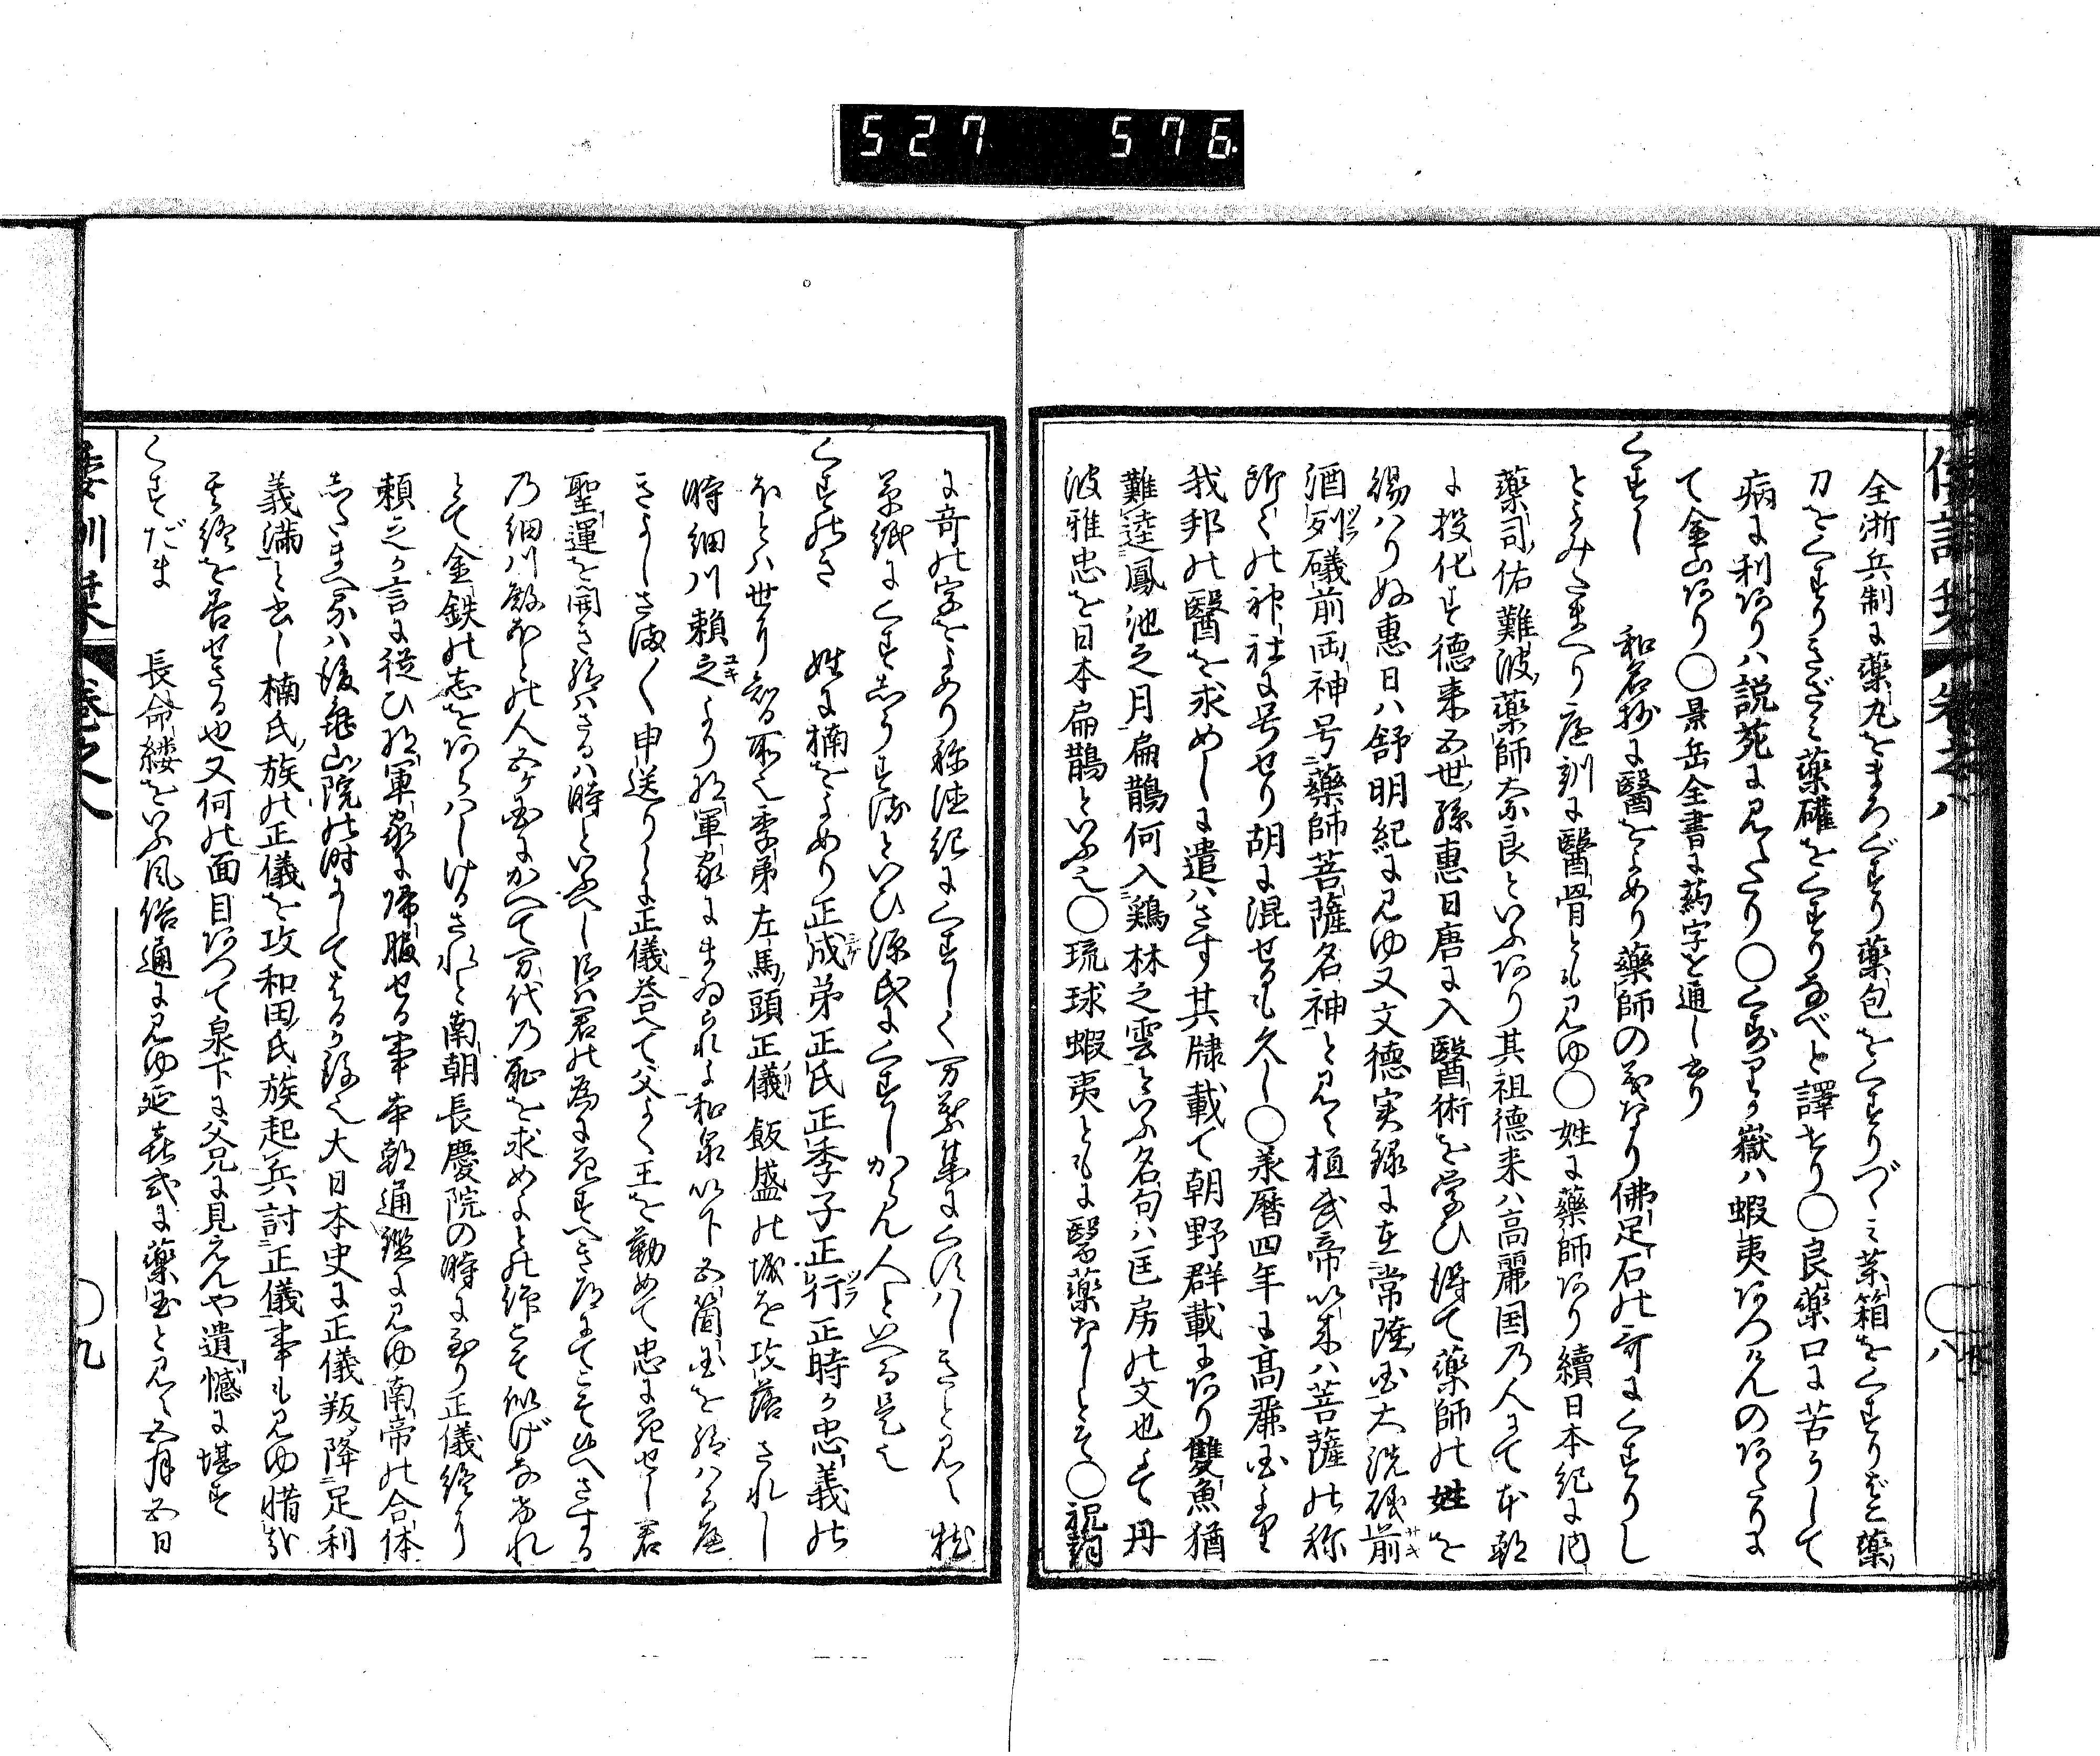 527 576
全浙兵制に薬丸をまろぐすり薬包をくすりづゝミ薬箱をくすりばこ薬
刀をくすりきざミ薬礶をくすりなべと譯せり○良薬口に苦うして
病に利ありハ説苑に見えたり
て金山あり○景岳全書に葯字を通し書り
くすし 和名抄に醫をよめり薬師の義なり佛足石の哥にくすりし
とよみたまへり庭訓に醫骨とも見ゆ○姓に薬師あり續日本紀に内
薬司佑難波薬師奈良といふあり其祖徳来ハ高麗国乃人にて本朝
に投化す徳来五世孫惠日唐に入醫術を学ひ得て薬師の姓を
賜ハりぬ惠日ハ舒明紀に見ゆ又文徳実録に在常陸国大洗磯前
酒列礒前両神号薬師菩薩名神と見え桓武帝以来ハ菩薩の称
所々の神社に号せり胡に混せるも久し○承暦四年に高麗国より
我邦の醫を求めしに遣ハさす其牒載て朝野群載にあり雙魚猶
難達鳳池之月扁鵲何入鶏林之雲といふ名句ハ匡房の文也とて丹
波雅忠を日本扁鵲といふ也○琉球蝦夷ともに醫薬なしとそ○祝詞
に奇の字をよめり称徳紀にくすしく万葉集にくすはしきと見え枕
草紙にくすしうすほといひ源氏にくすしからん人といへる是也
くすのき 姓に楠をよめり正成弟正氏正季子正行正時か忠義の
ほとハ世に知る所也季弟左馬頭正儀飯盛の城を攻落されし
時細川頼之より将軍家にまゐられよ和泉以下五箇国を給ハる庭
きよしさまく申送りしに正儀答へて父よく王を勤めて忠に死せし君
聖運を開き給ハさるハ時といふへし
乃細川殿ほとの人五ケ国にかへて万代乃恥を求めよとの給ことそ似げなけれ
とて金鉄の志をあらハしけるされと南朝長慶院の時に至り正儀終に
頼之か言に従ひ将軍家に帰服せる事本朝通鑑に見ゆ南帝の合体
したまへるハ後亀山院の時にしてはるか後也大日本史に正儀叛降足利
義満と書し楠氏族の正儀を攻和田氏族起兵討正儀事も見ゆ惜哉
其終を善せさる也又何の面目あつて泉下に父兄に見えんや遺憾に堪す
くすだま 長命縷をいふ風俗通に見ゆ延喜式に薬玉と見え五月五日
倭訓栞 巻之八 ○八
倭訓栞 巻之八 ○九